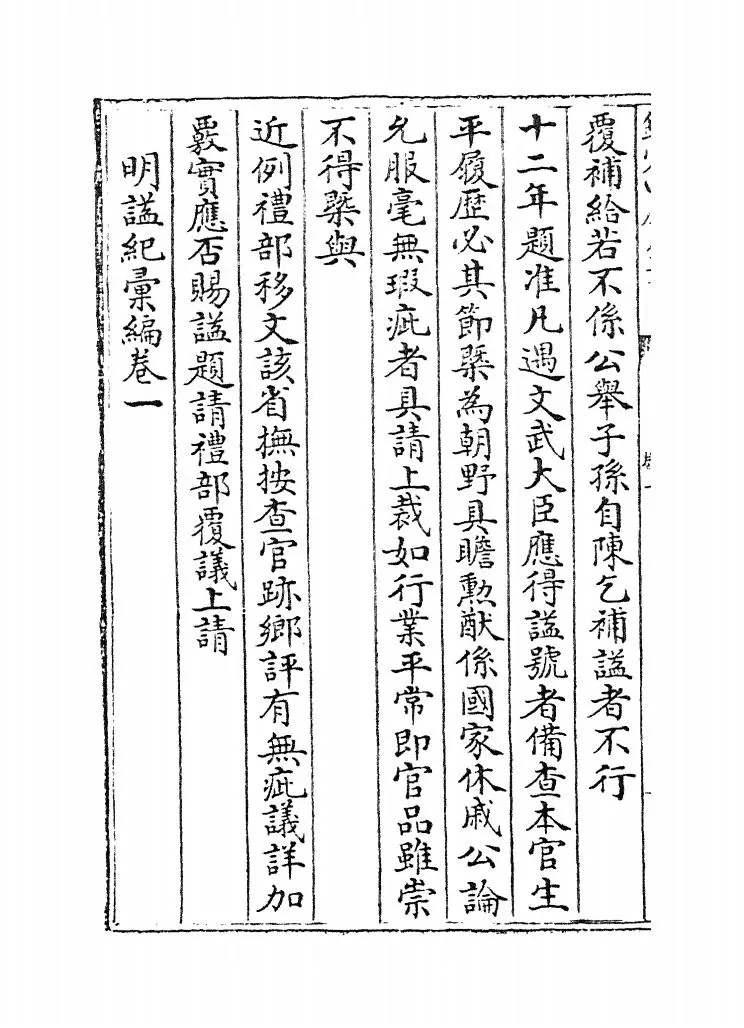 覆補給若不係公舉子孫自陳乞補諡者不行
十二年題准凡遇文武大臣應得諡號者備查本官生
平履歷必其節槩為朝野具瞻勲猷係國家休戚公論
允服毫無瑕疵者具請上裁如行業平常即官品雖崇
不得槩與
近例禮部移文該省撫按查官跡鄉評有無疵議詳加
覈實應否賜諡題請禮部覆議上請
明諡紀彙編卷一